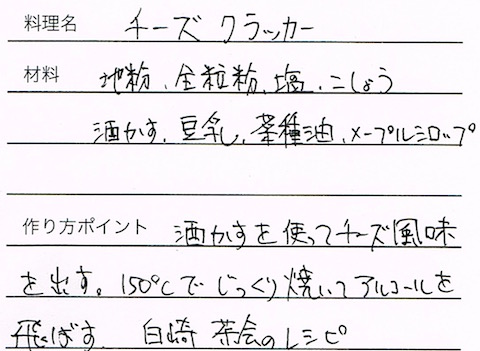 料理名 チーズクラッカー
材料 地粉、全粒粉、塩、こしょう
酒かす、豆乳、菜種油、メープルシロップ
作り方ポイント 酒かすを使ってチーズ風味
を出す。150℃でじっくり焼いてアルコールを
飛ばす 白崎茶会のレシピ